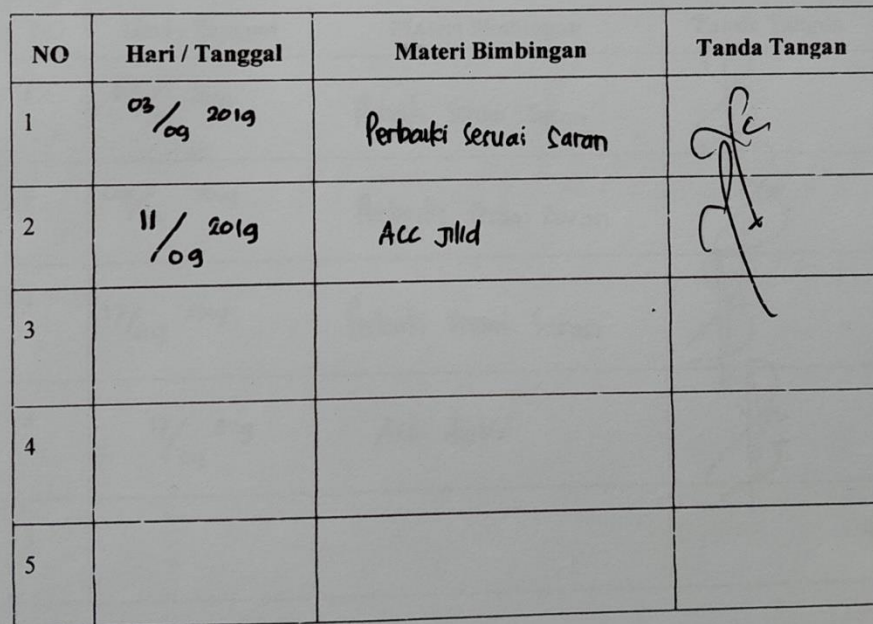 NO Hari / Tanggal Materi Bimbingan Tanda Tangan
1 03/09 2019 Perbaiki Sesuai Saran
2 11/09 2019 ACC Jilid
3
4
5